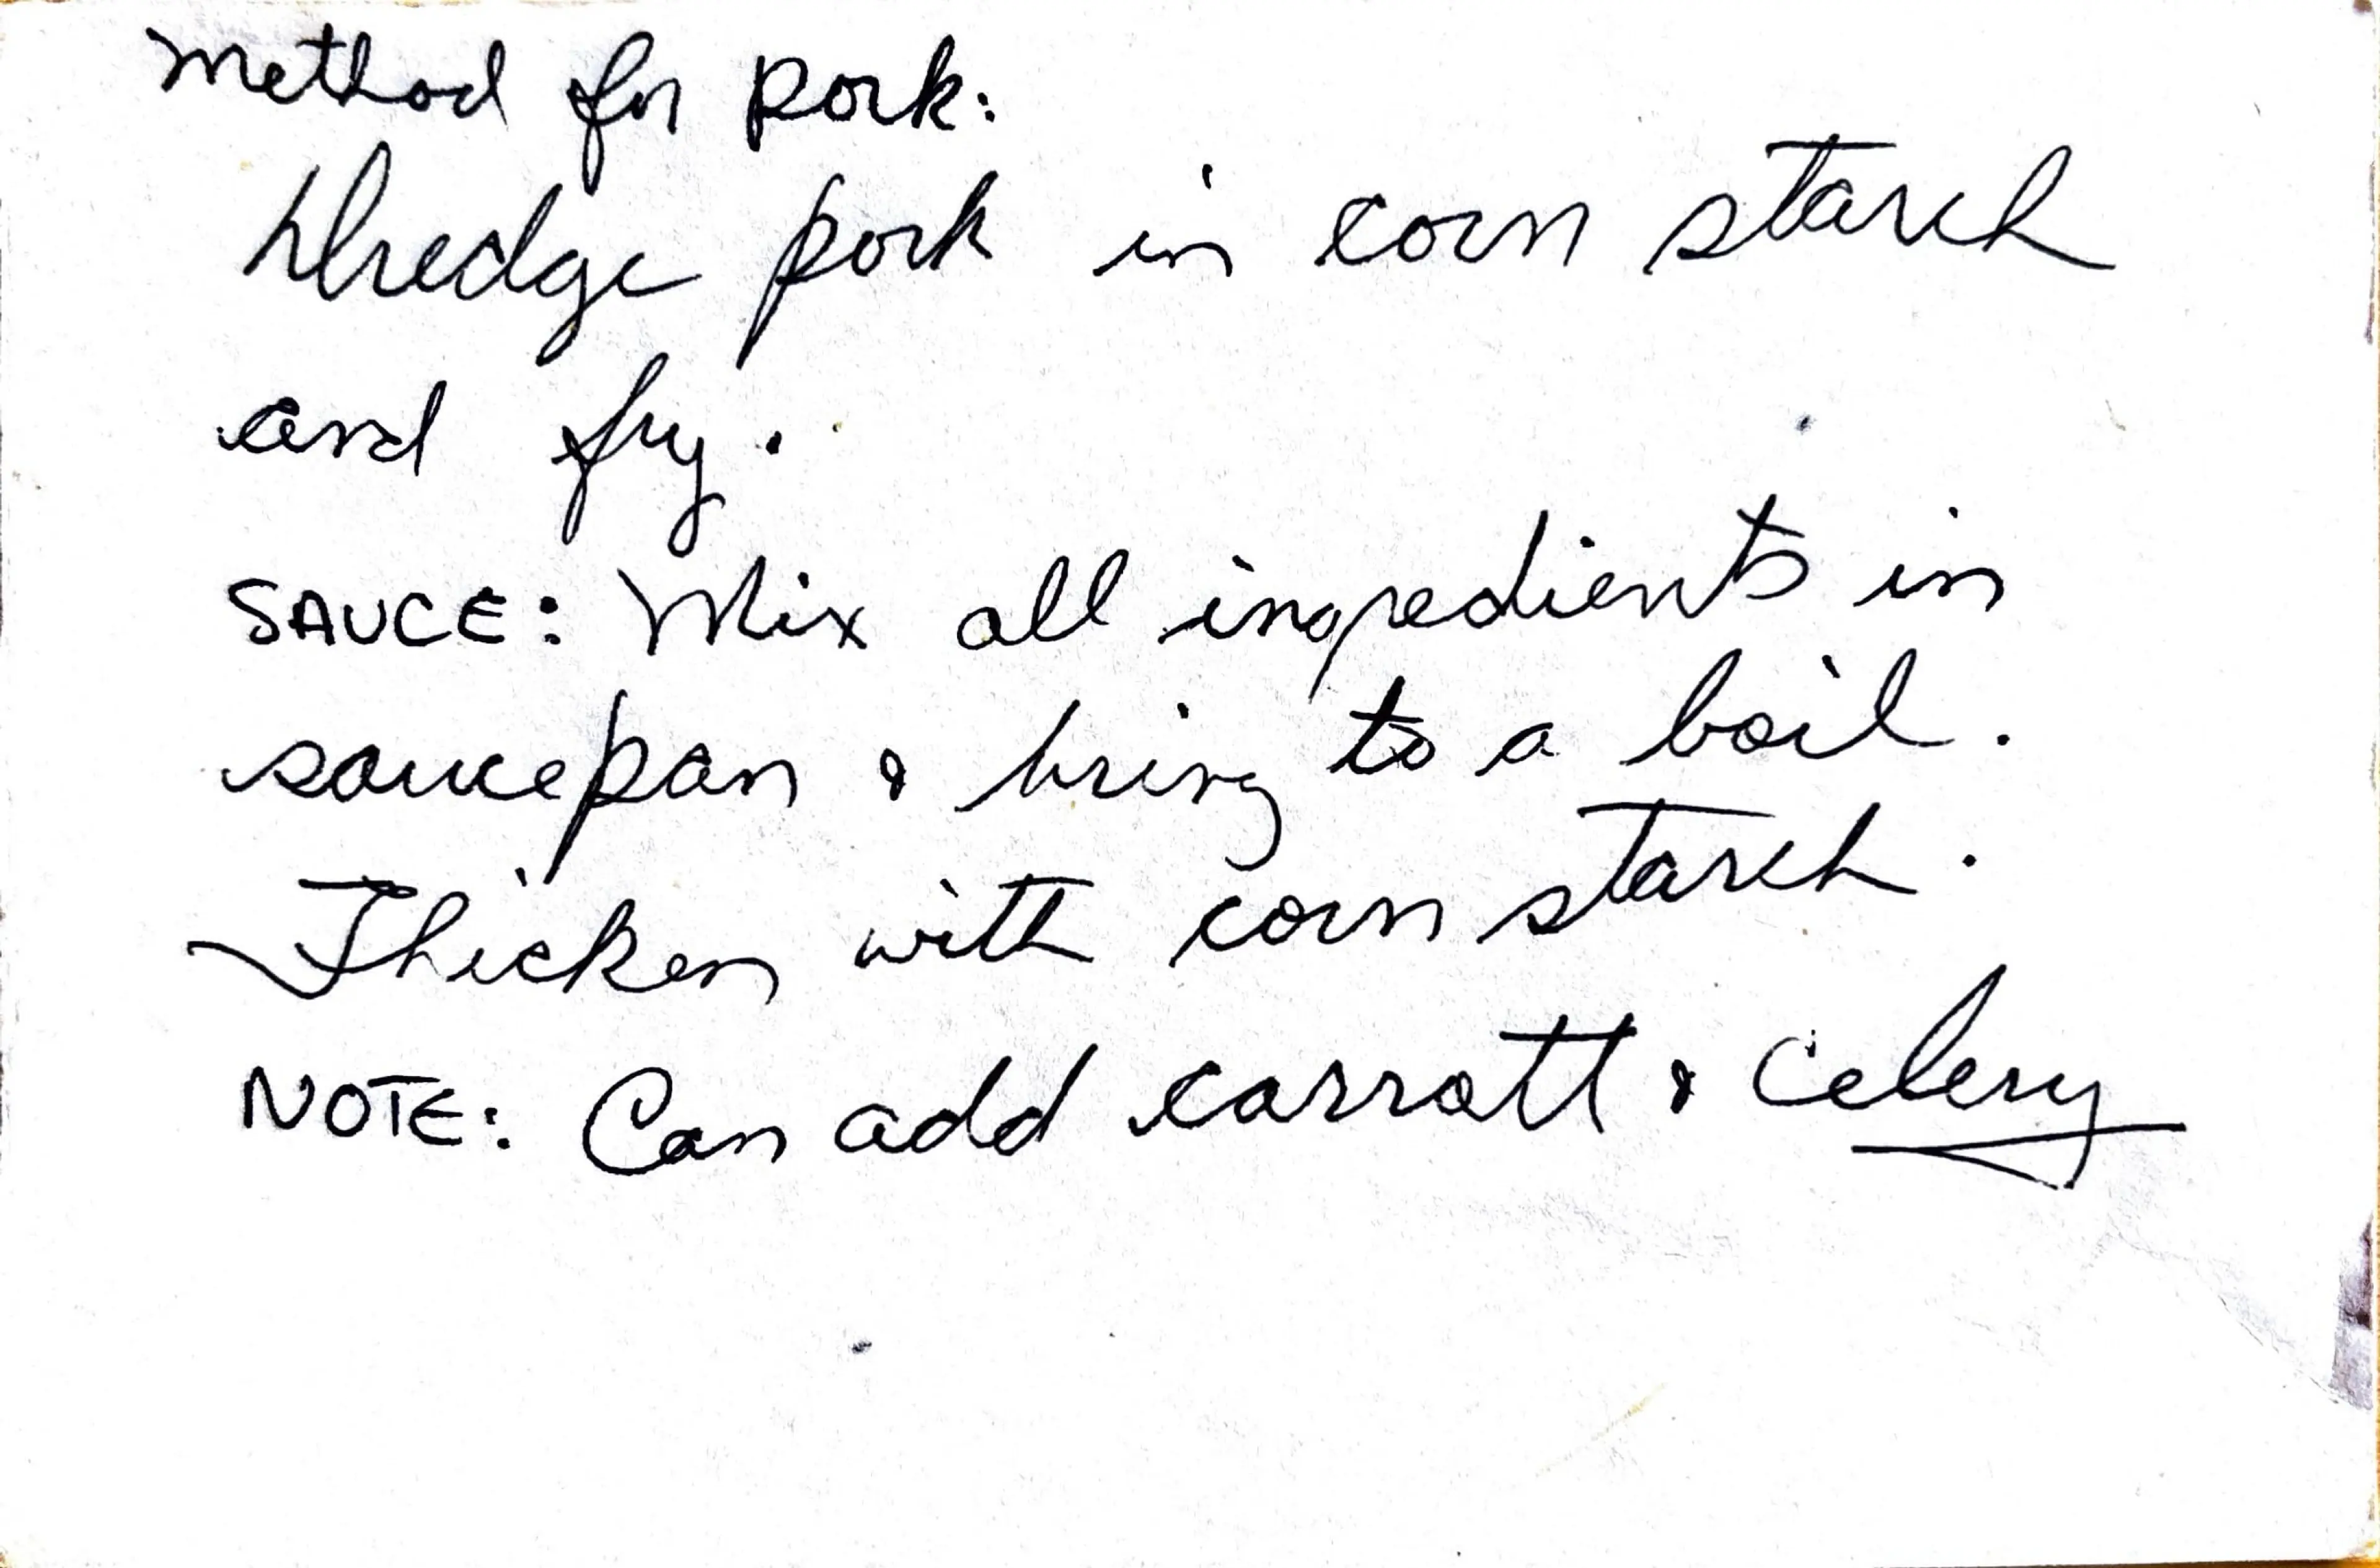 Method for pork:
Dredge pork in corn starch
and fry.
SAUCE: Mix all ingredients in
saucepan & bring to a boil.
Thicken with corn starch.
NOTE: Can add carrott & Celery